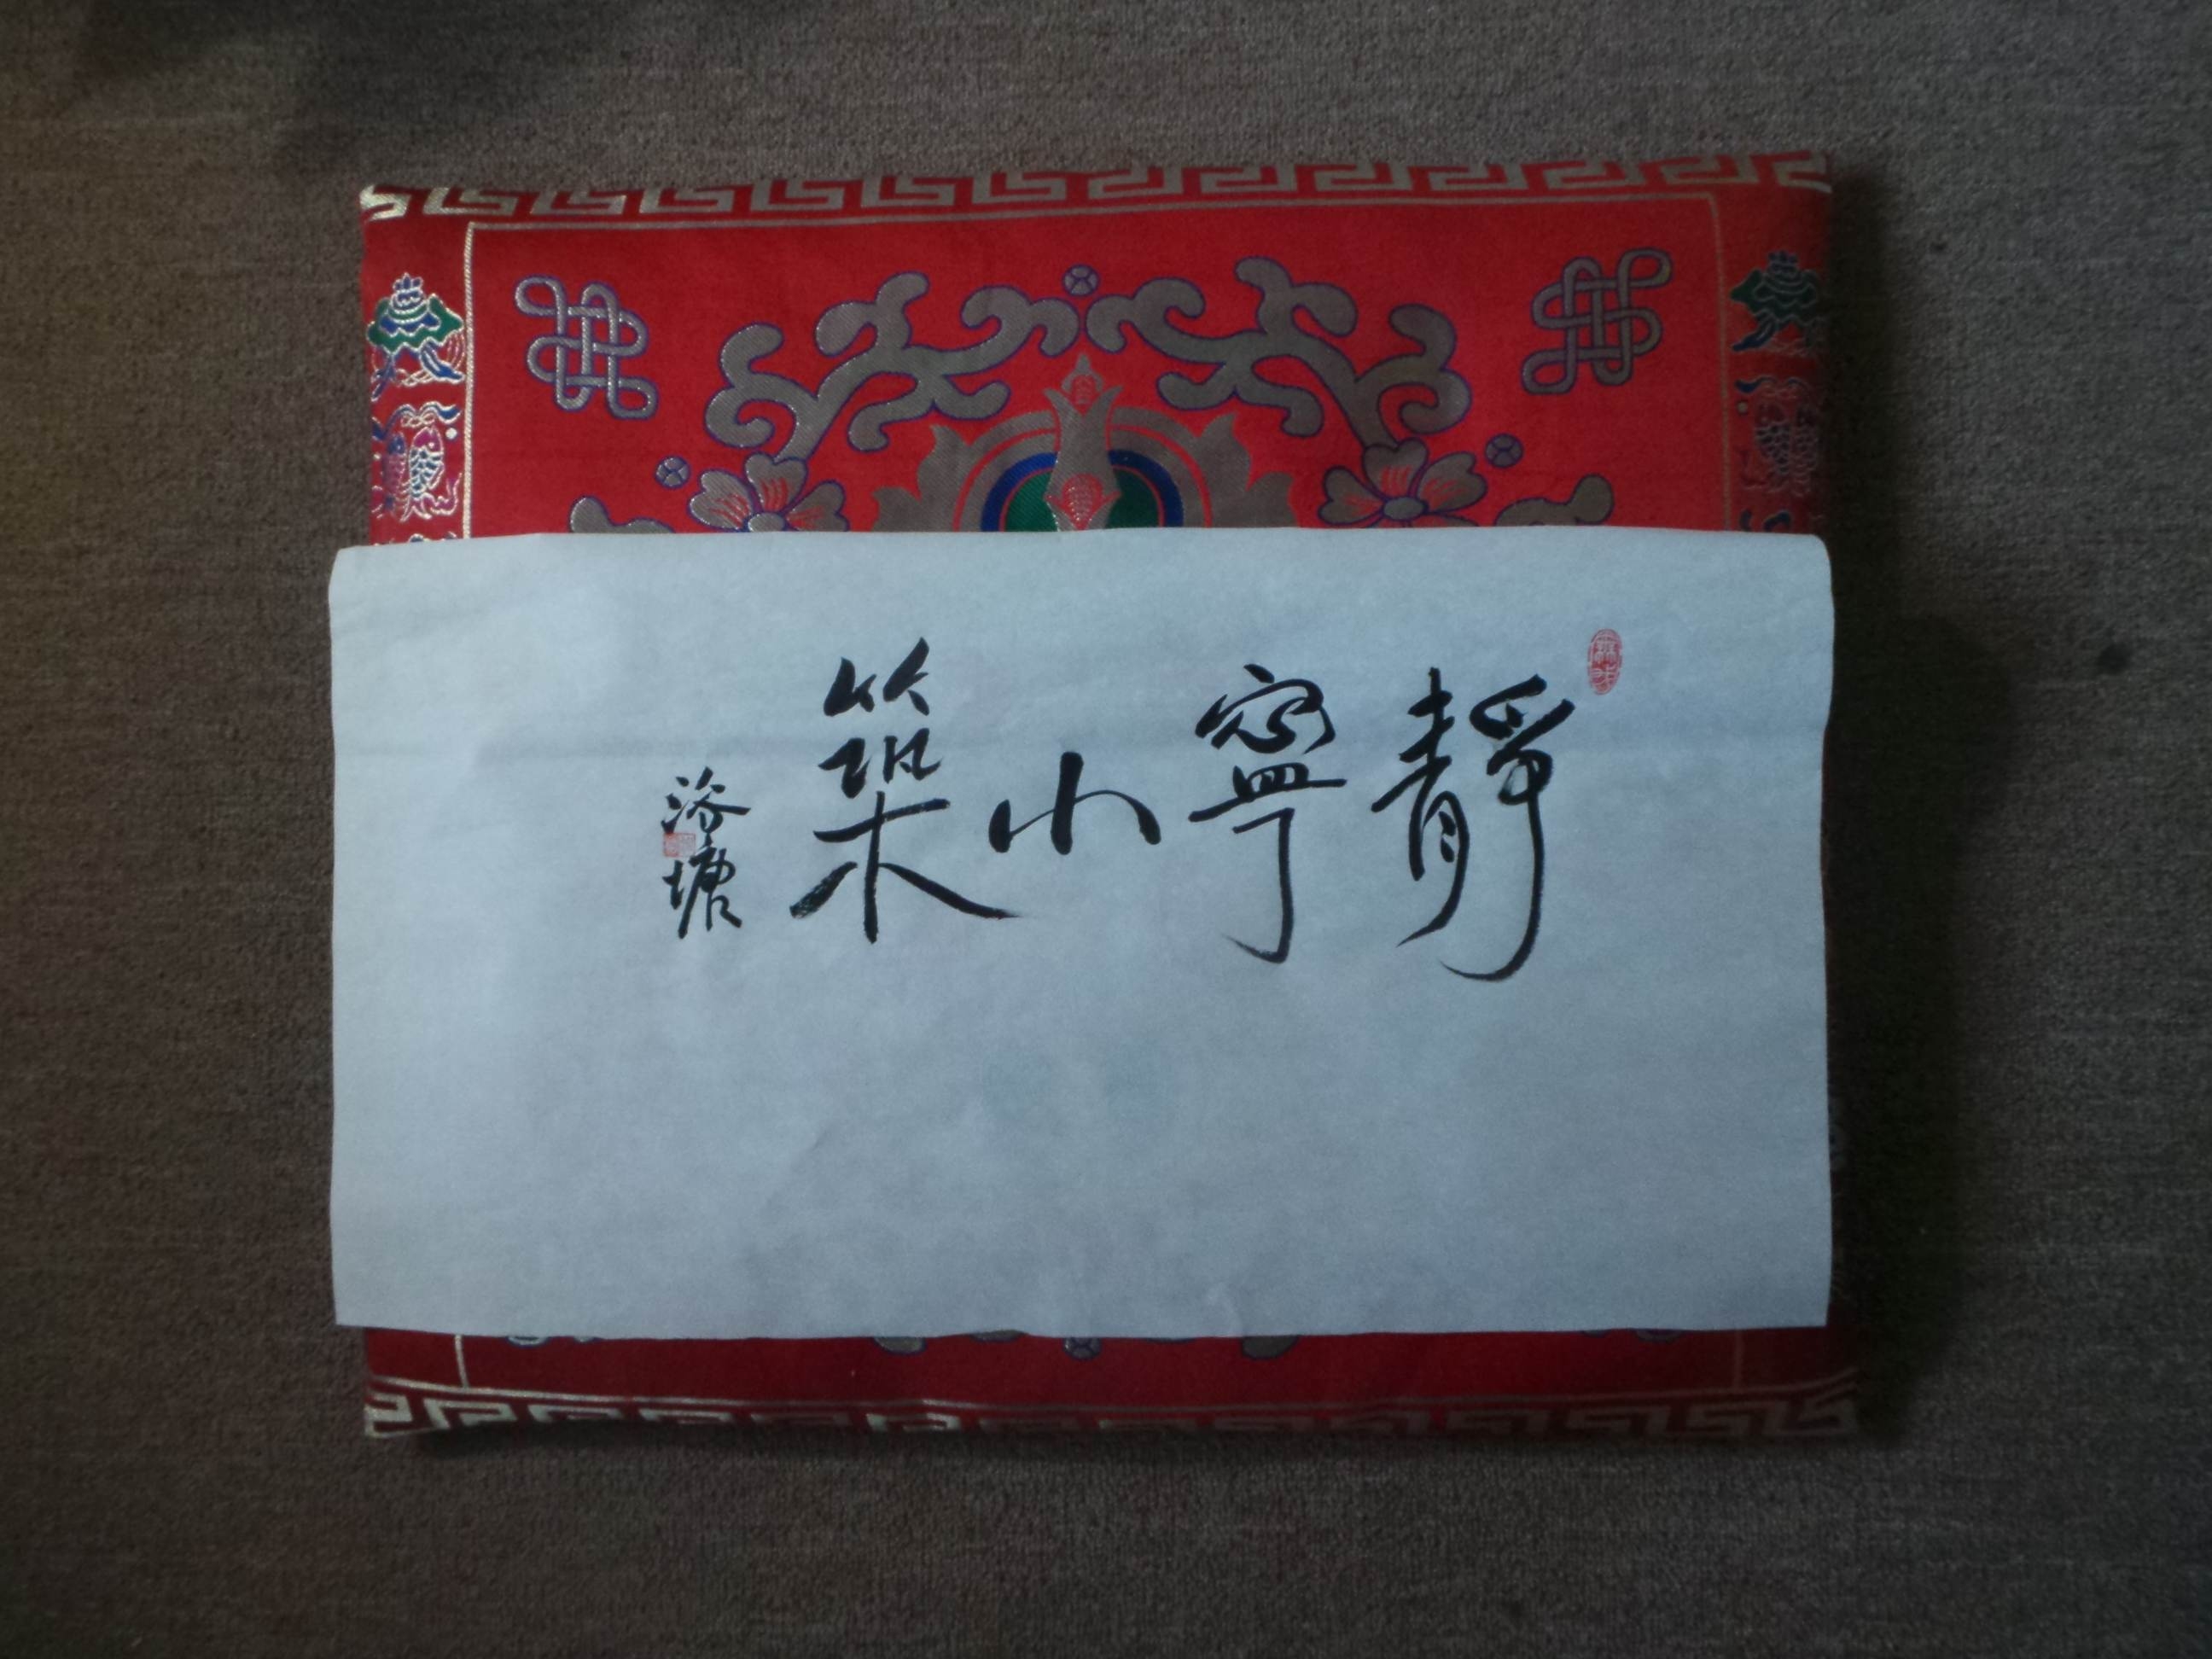 靜寧小築
浴塘